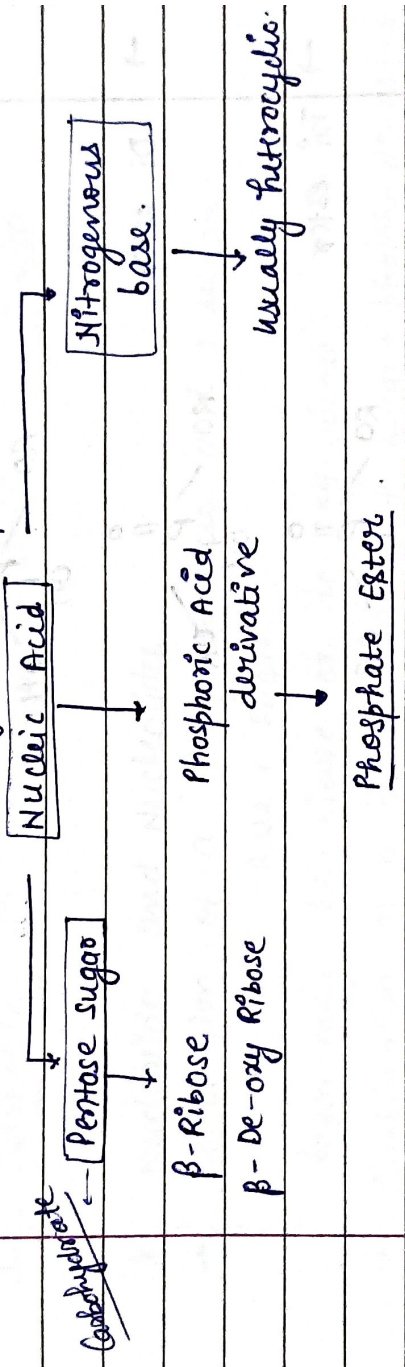 Nucleic Acid
Carbohydrate ← Pentose Sugar
β-Ribose
β-De-oxy Ribose
Phosphoric Acid
derivative
Phosphate Ester.
Nitrogenous
base.
usually heterocyclic.